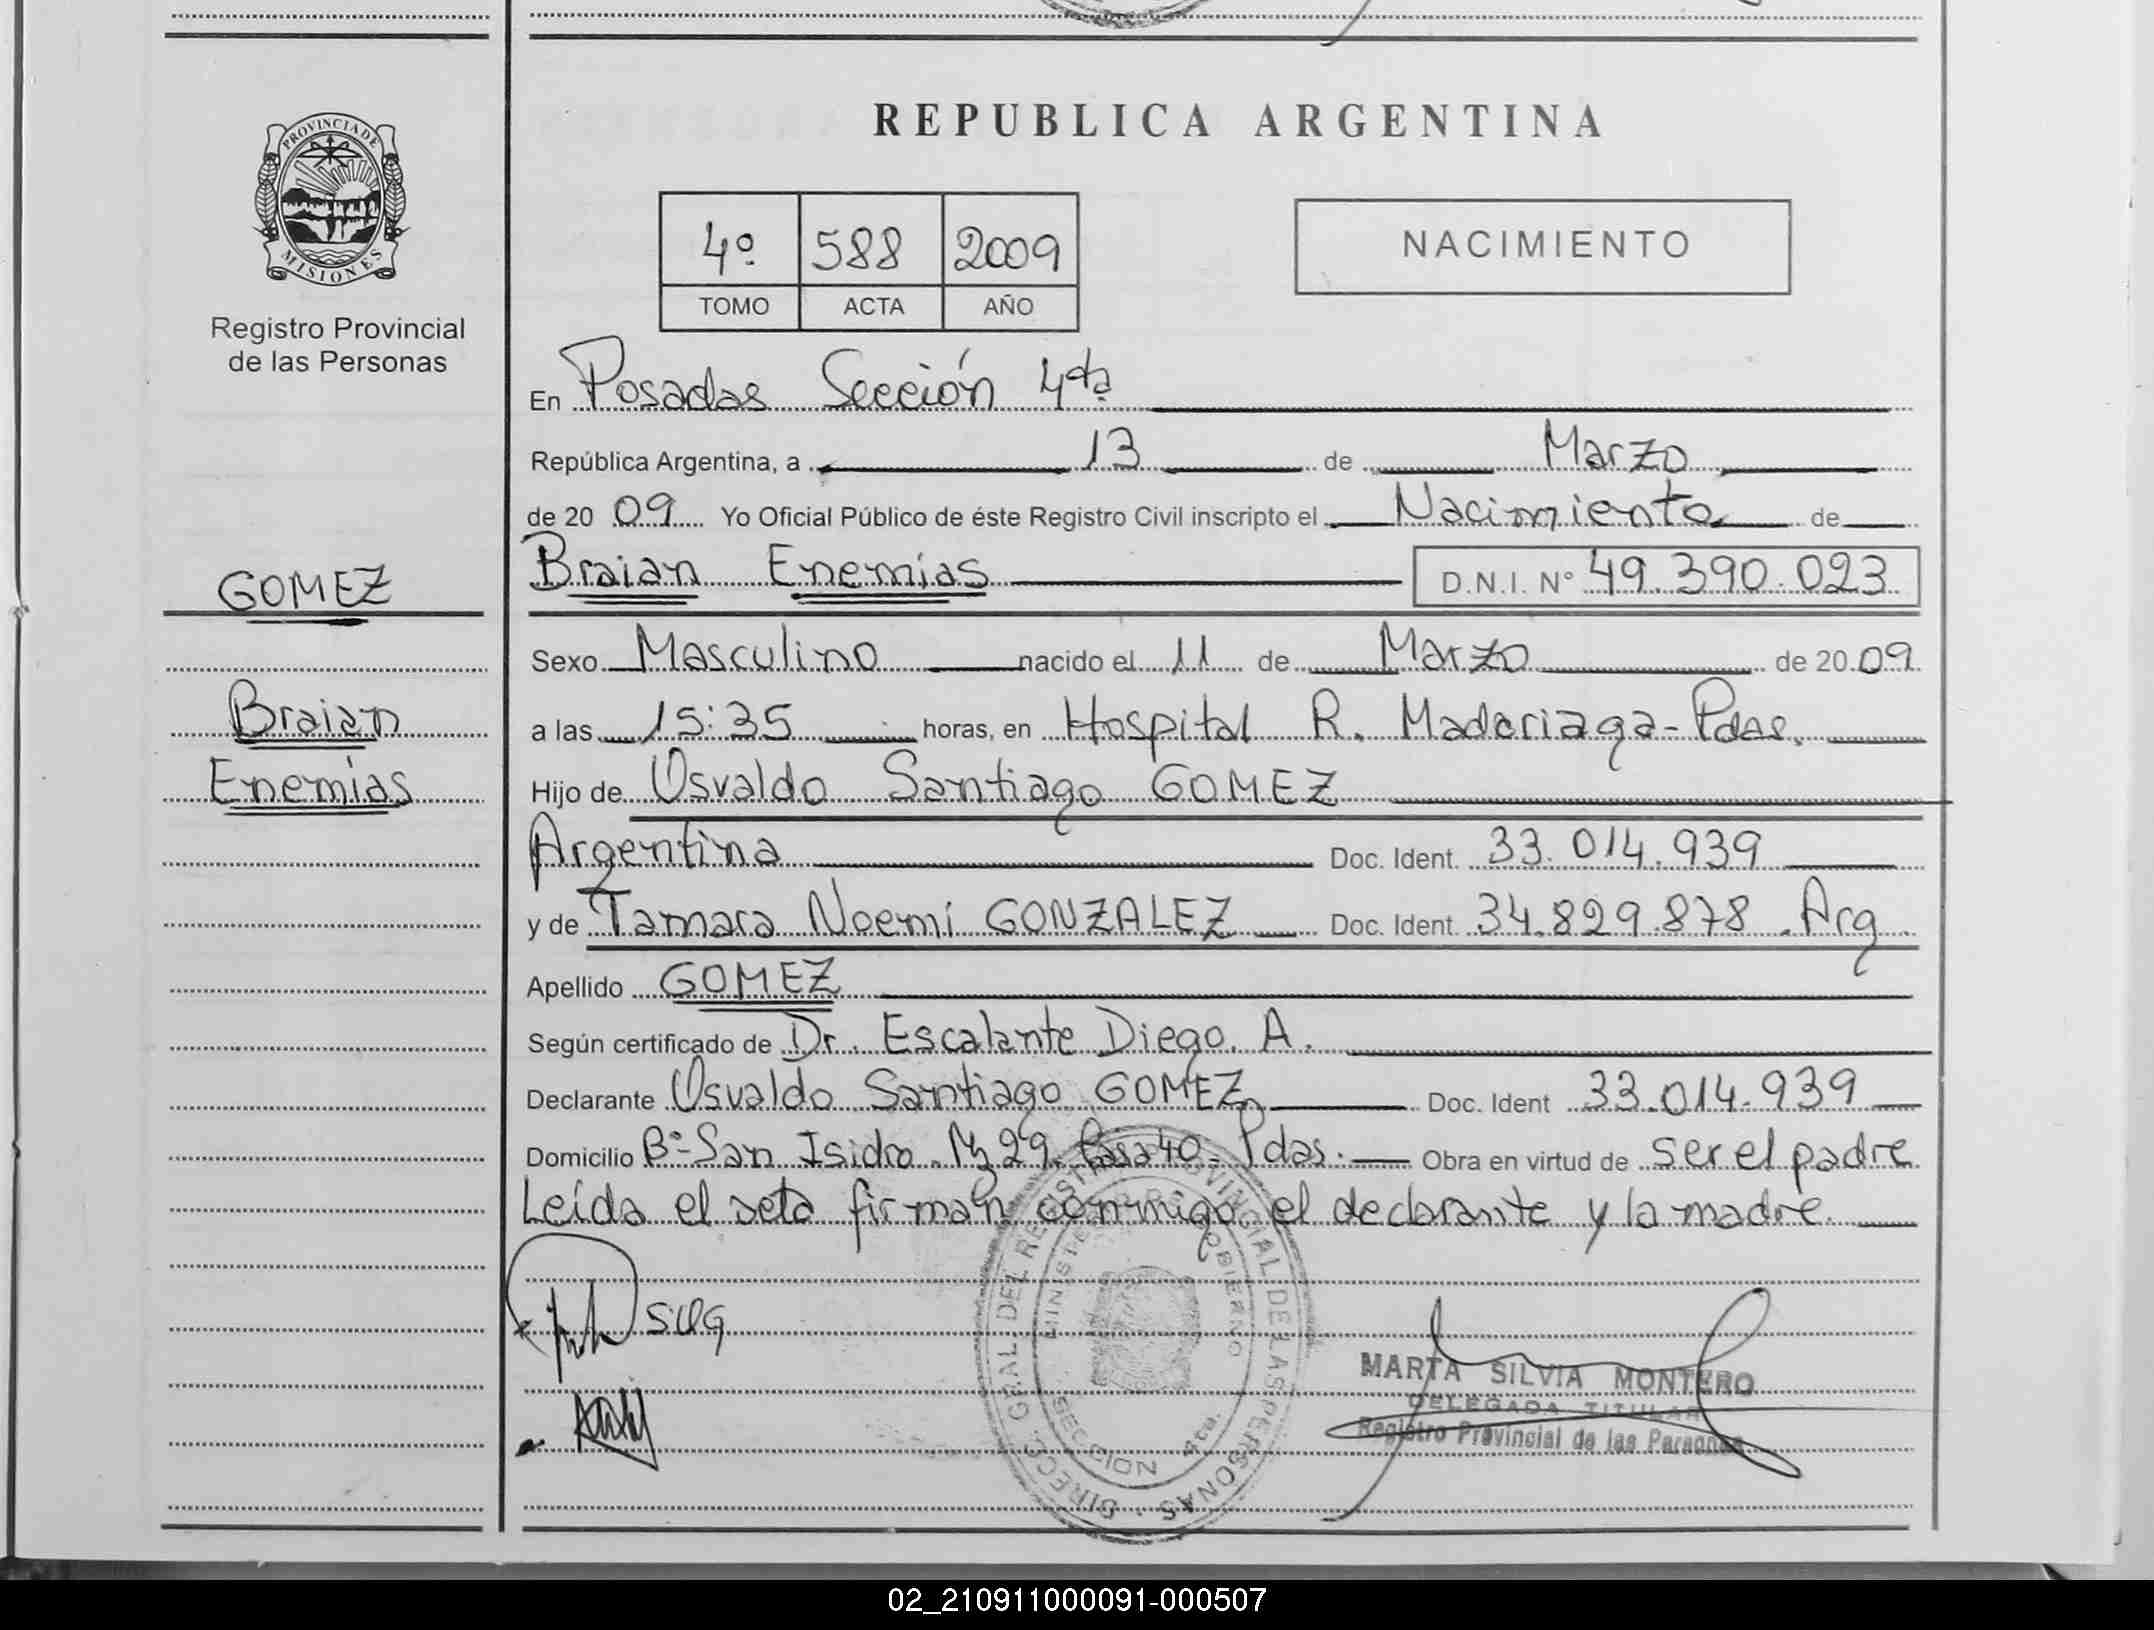 PROVINCIA DE
MISIONES
Registro Provincial
de las Personas
GOMEZ
Braian
Enemías
REPUBLICA ARGENTINA
4º 588 2009
TOMO ACTA AÑO
NACIMIENTO
En Posadas Sección 4ta
República Argentina, a 13 de Marzo
de 2009 Yo Oficial Público de éste Registro Civil inscripto el Nacimiento de
Braian Enemías D.N.I. Nº 49.390.023
Sexo Masculino nacido el 11 de Marzo de 2009
a las 15:35 horas, en Hospital R. Madariaga-Pdas.
Hijo de Osvaldo Santiago GOMEZ
Argentina Doc. Ident. 33.014.939
y de Tamara Noemí GONZALEZ Doc. Ident. 34.829.878 Arg.
Apellido GOMEZ
Según certificado de Dr. Escalante Diego. A.
Declarante Osvaldo Santiago GOMEZ Doc. Ident 33.014.939
Domicilio Bº San Isidro. Mz 29. Casa 40- Pdas. Obra en virtud de ser el padre
Leída el acta firman conmigo el declarante y la madre.
DIRECC. GRAL DEL REGISTRO PROVINCIAL DE LAS PERSONAS
MINISTERIO GOBIERNO
SECCION 4ta.
MARTA SILVIA MONTERO
DELEGADA TITULAR
Registro Provincial de las Personas
02_210911000091-000507